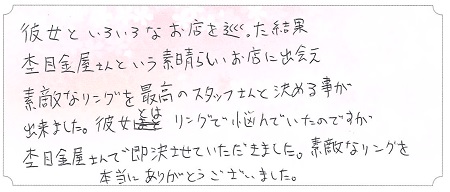 彼女といろいろなお店を巡った結果
杢目金屋さんという素晴らしいお店に出会え
素敵なリングを最高のスタッフさんと決める事が
出来ました。彼女とはリングで悩んでいたのですが
杢目金屋さんで即決させていただきました。素敵なリングを
本当にありがとうございました。